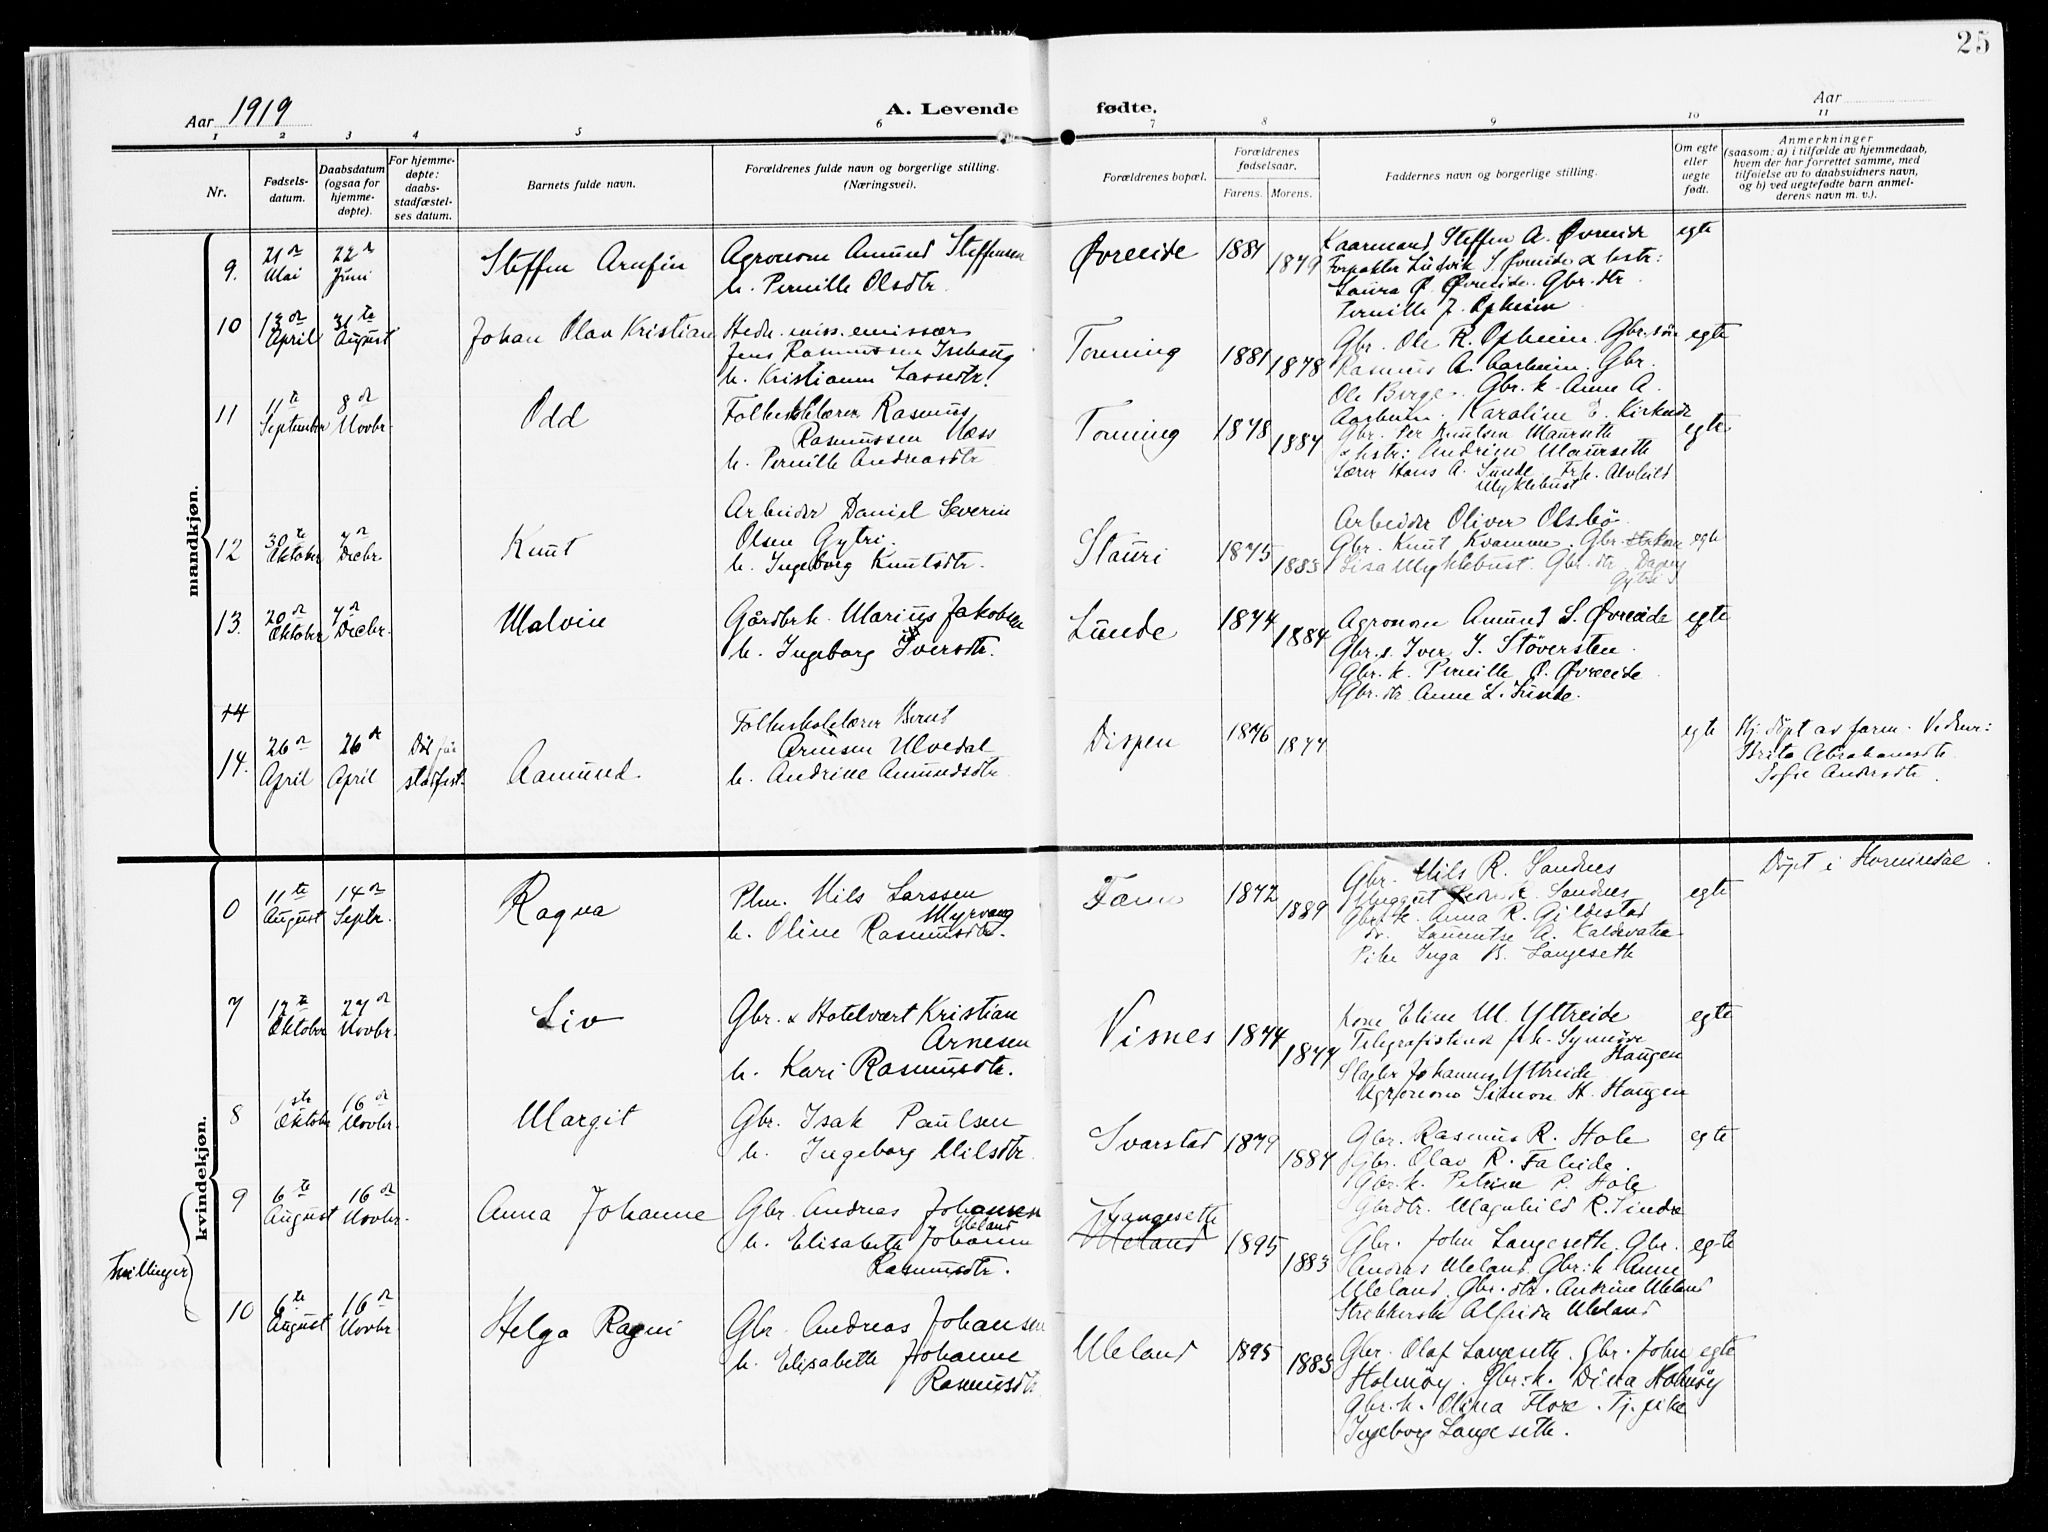 25
Aar 1919
A. Levende fødte.
Aar
1 2 3 4 5 6 7 8 9 10 11
Nr.
Fødsels-
datum.
Daabsdatum
(ogsaa for
hjemme-
døpte).
For hjemme-
døpte:
daabs-
stadfæstel-
ses datum.
Barnets fulde navn.
Forældrenes fulde navn og borgerlige stilling.
(Næringsvei).
Forældrenes bopæl.
Forældrenes
fødselsaar.
Farens. Morens.
Faddernes navn og borgerlige stilling.
Om egte
eller
uegte
født.
Anmerkninger
(saasom: a) i tilfælde av hjemmedaab,
hvem der har forrettet samme, med
tilføielse av to daabsvidners navn,
og b) ved uegtefødte barn anmel-
derens navn m. v.).
mandkjøn.
9. 21de Mai 22de Juni
Steffen Arnfin
Agronom Amund Steffensen
h. Pernille Olsdtr.
Øvreeide 1881 1879
Kaarmand Steffen A. Øvreide
Forpakter Ludvik S. Øvreide & hstr:
Laura O. Øvreide. Gbr. dtr.
Pernille J. Opheim
egte
10 13de April 31te August
Johan Olav Kristian
Hedn. miss. emissær
Jens Rasmussen
h. Kristianne Lassedtr.
Tonning 1881 1878
Gbr. Ole R. Opheim. Gbr. søn
Rasmus A. Aarheim. Gbr.
Ole Berge. Gbr. k. Anne A.
Aarheim. Karoline E. Kirkeide
egte
11 11te September 8de Novbr.
Odd
Folkeskolelærer Rasmus
Rasmussen Næss
h. Pernille Andreasdtr.
Tonning 1878 1884
Gbr. Per Knutsen Maurseth
& hstr: Andrine Maurseth
Lærer Hans A. Sunde. Frk. Alvhild
Myklebust
egte
12 30te Oktober 7de Decbr.
Knut
Arbeider Daniel Severin
Olsen Gytri.
h. Ingeborg Knutsdtr.
Stauri 1875 1883
Arbeider Oliver Olsbö
Gbr. Knut Kvamme. Gbr. kone
Lisa Myklebust. Gbr. dtr. Dagny
Gytri
egte
13. 20de Oktober 7de Decbr.
Malvin
Gårdbrk. Marius Jakobsen
h. Ingeborg Iversdtr.
Lunde 1874 1884
Agronom Amund S. Øvreeide
Gbr. s. Iver J. Støversten
Gbr. k. Pernille O. Øvreeide
Gbr. dtr. Anne L. Lunde.
egte
14
14. 26de April 26de April
Død før
stadfest.
Aamund
Folkeskolelærer Bernt
Arnesen Ulvedal
h. Andrine Amundsdtr.
Dispen 1876 1877
egte
Hj. döpt av farm. Vidner:
Brita Abrahamsdtr.
Sofie Andersdtr.
kvindekjøn.
6 11te August 14de Septr.
Ragna
Plm. Nils Larssen
Myrvang
h. Oline Rasmusdtr.
Fænn 1872 1889
Gbr. Nils R. Sandnes
Sandnes
Gbr. k. Anna R. Gildestad
Laurentse A. Kaldevatn
Pike Inga B. Langeseth
egte
Döpt i Hornindal.
7 12te Oktober 27de Novbr.
Liv
Gbr. & Hotelvært Kristian
Arnesen
h. Kari Rasmusdtr.
Visnes 1874 1877
Kone Eline M. Yttreide
Telegrafistinde frk. Synnöve
Haugen
Slagter Johannes Yttreide
Agronom Simon H. Haugen
egte
8 1ste Oktober 16de Novbr.
Margit
Gbr. Isak Paulsen
h. Ingeborg Nilsdtr.
Svarstad 1879 1884
Gbr. Rasmus R. Hole
Gbr. Olav R. Faleide.
Gbr. k. Petrine P. Hole
Gbrdtr. Magnhild R. Sindre
egte
Tvillinger
9 6te August 16de Novbr.
Anna Johanne
Gbr. Andreas Johansen
Uleland
h. Elisabeth Johanne
Rasmusdtr.
Langeseth
Uleland 1895 1883
Gbr. John Langeseth. Gbr.
Andreas Uleland. Gbr. k. Anne
Uleland. Gbr. dtr. Andrine Uleland
Strikkerske Alfrida Uleland
egte
10 6te August 16de Novbr.
Helga Ragni
Gbr. Andreas Johansen
h. Elisabeth Johanne
Rasmusdtr.
Uleland 1895 1883
Gbr. Olaf Langeseth. Gbr. John
Holmöy. Gbr. k. Dina Holmöy
Gbr. k. Olina Flore. Tj. pike
Ingeborg Langeseth.
egte